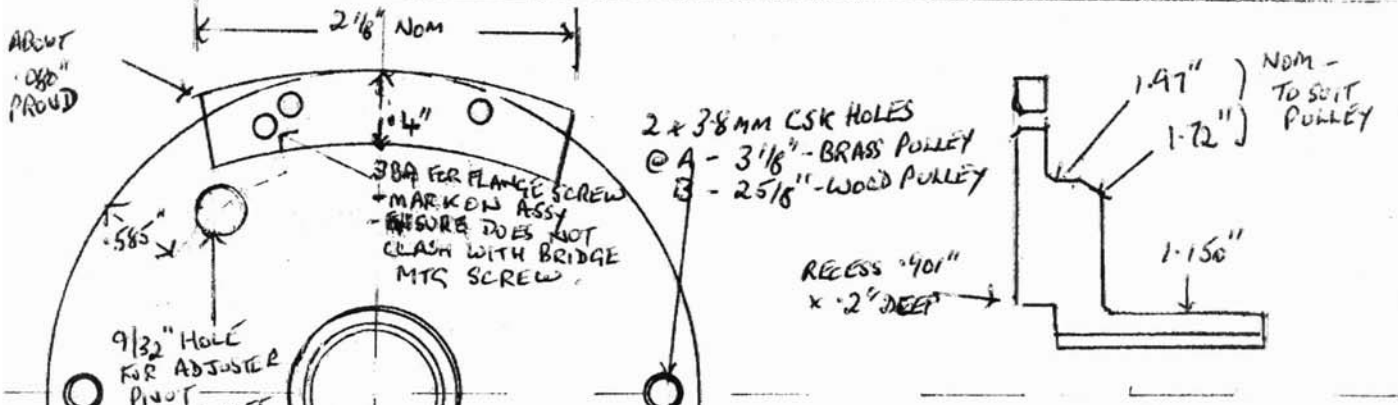 2 1/8" NOM
ABOUT
.080"
PROUD
.4"
3BA FOR FLANGE SCREW
- MARK ON ASSY
- ENSURE DOES NOT
CLASH WITH BRIDGE
MTG SCREW.
.585"
9/32" HOLE
FOR ADJUSTER
PIVOT
2 x 3.8 MM CSK HOLES
@ A - 3 1/8" - BRASS PULLEY
B - 2 5/8" - WOOD PULLEY
1.97" ) NOM -
TO SUIT
1.72" ) PULLEY
RECESS .901"
x .2" DEEP
1.150"